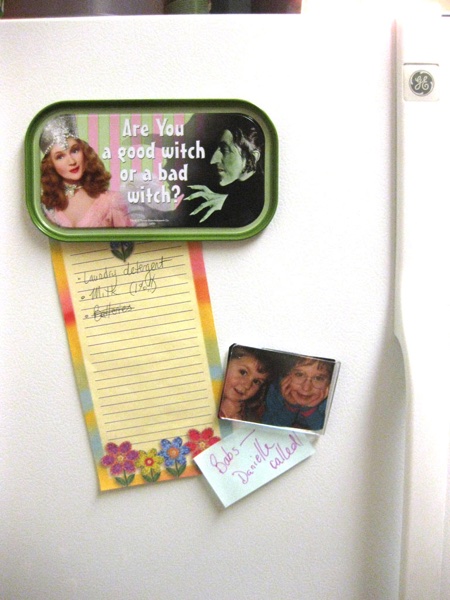 GE
Are You
a good witch
or a bad
witch?
- Laundry detergent
- Milk (1%)
- Batteries
Babs —
Danielle
called!